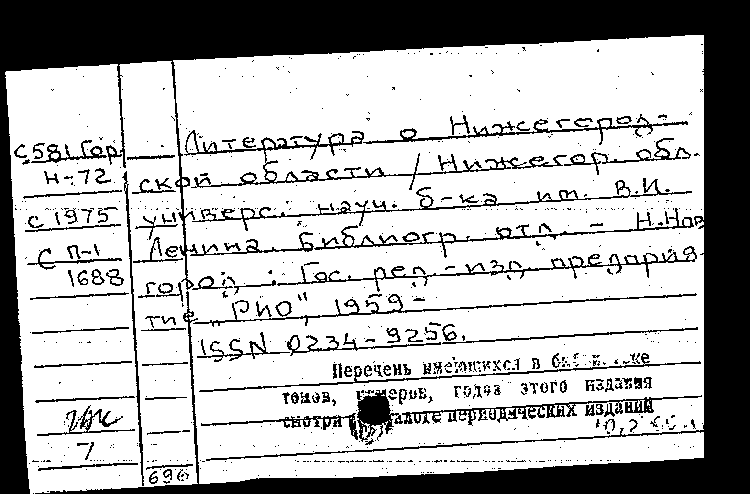 С581 Гор
Н-72
С 1975
С П-1
1688
Литература о Нижегород-
ской области / Нижегор. обл.
универс. науч. б-ка им. В.И.
Ленина. Библиогр. отд. - Н.Нов
город : Гос. ред.-изд. предприя-
тие „РИО", 1959 -
ISSN 0234-9256.
Перечень имеющихся в
томов, номеров, годов этого издания
смотри периодических изданий
7
696